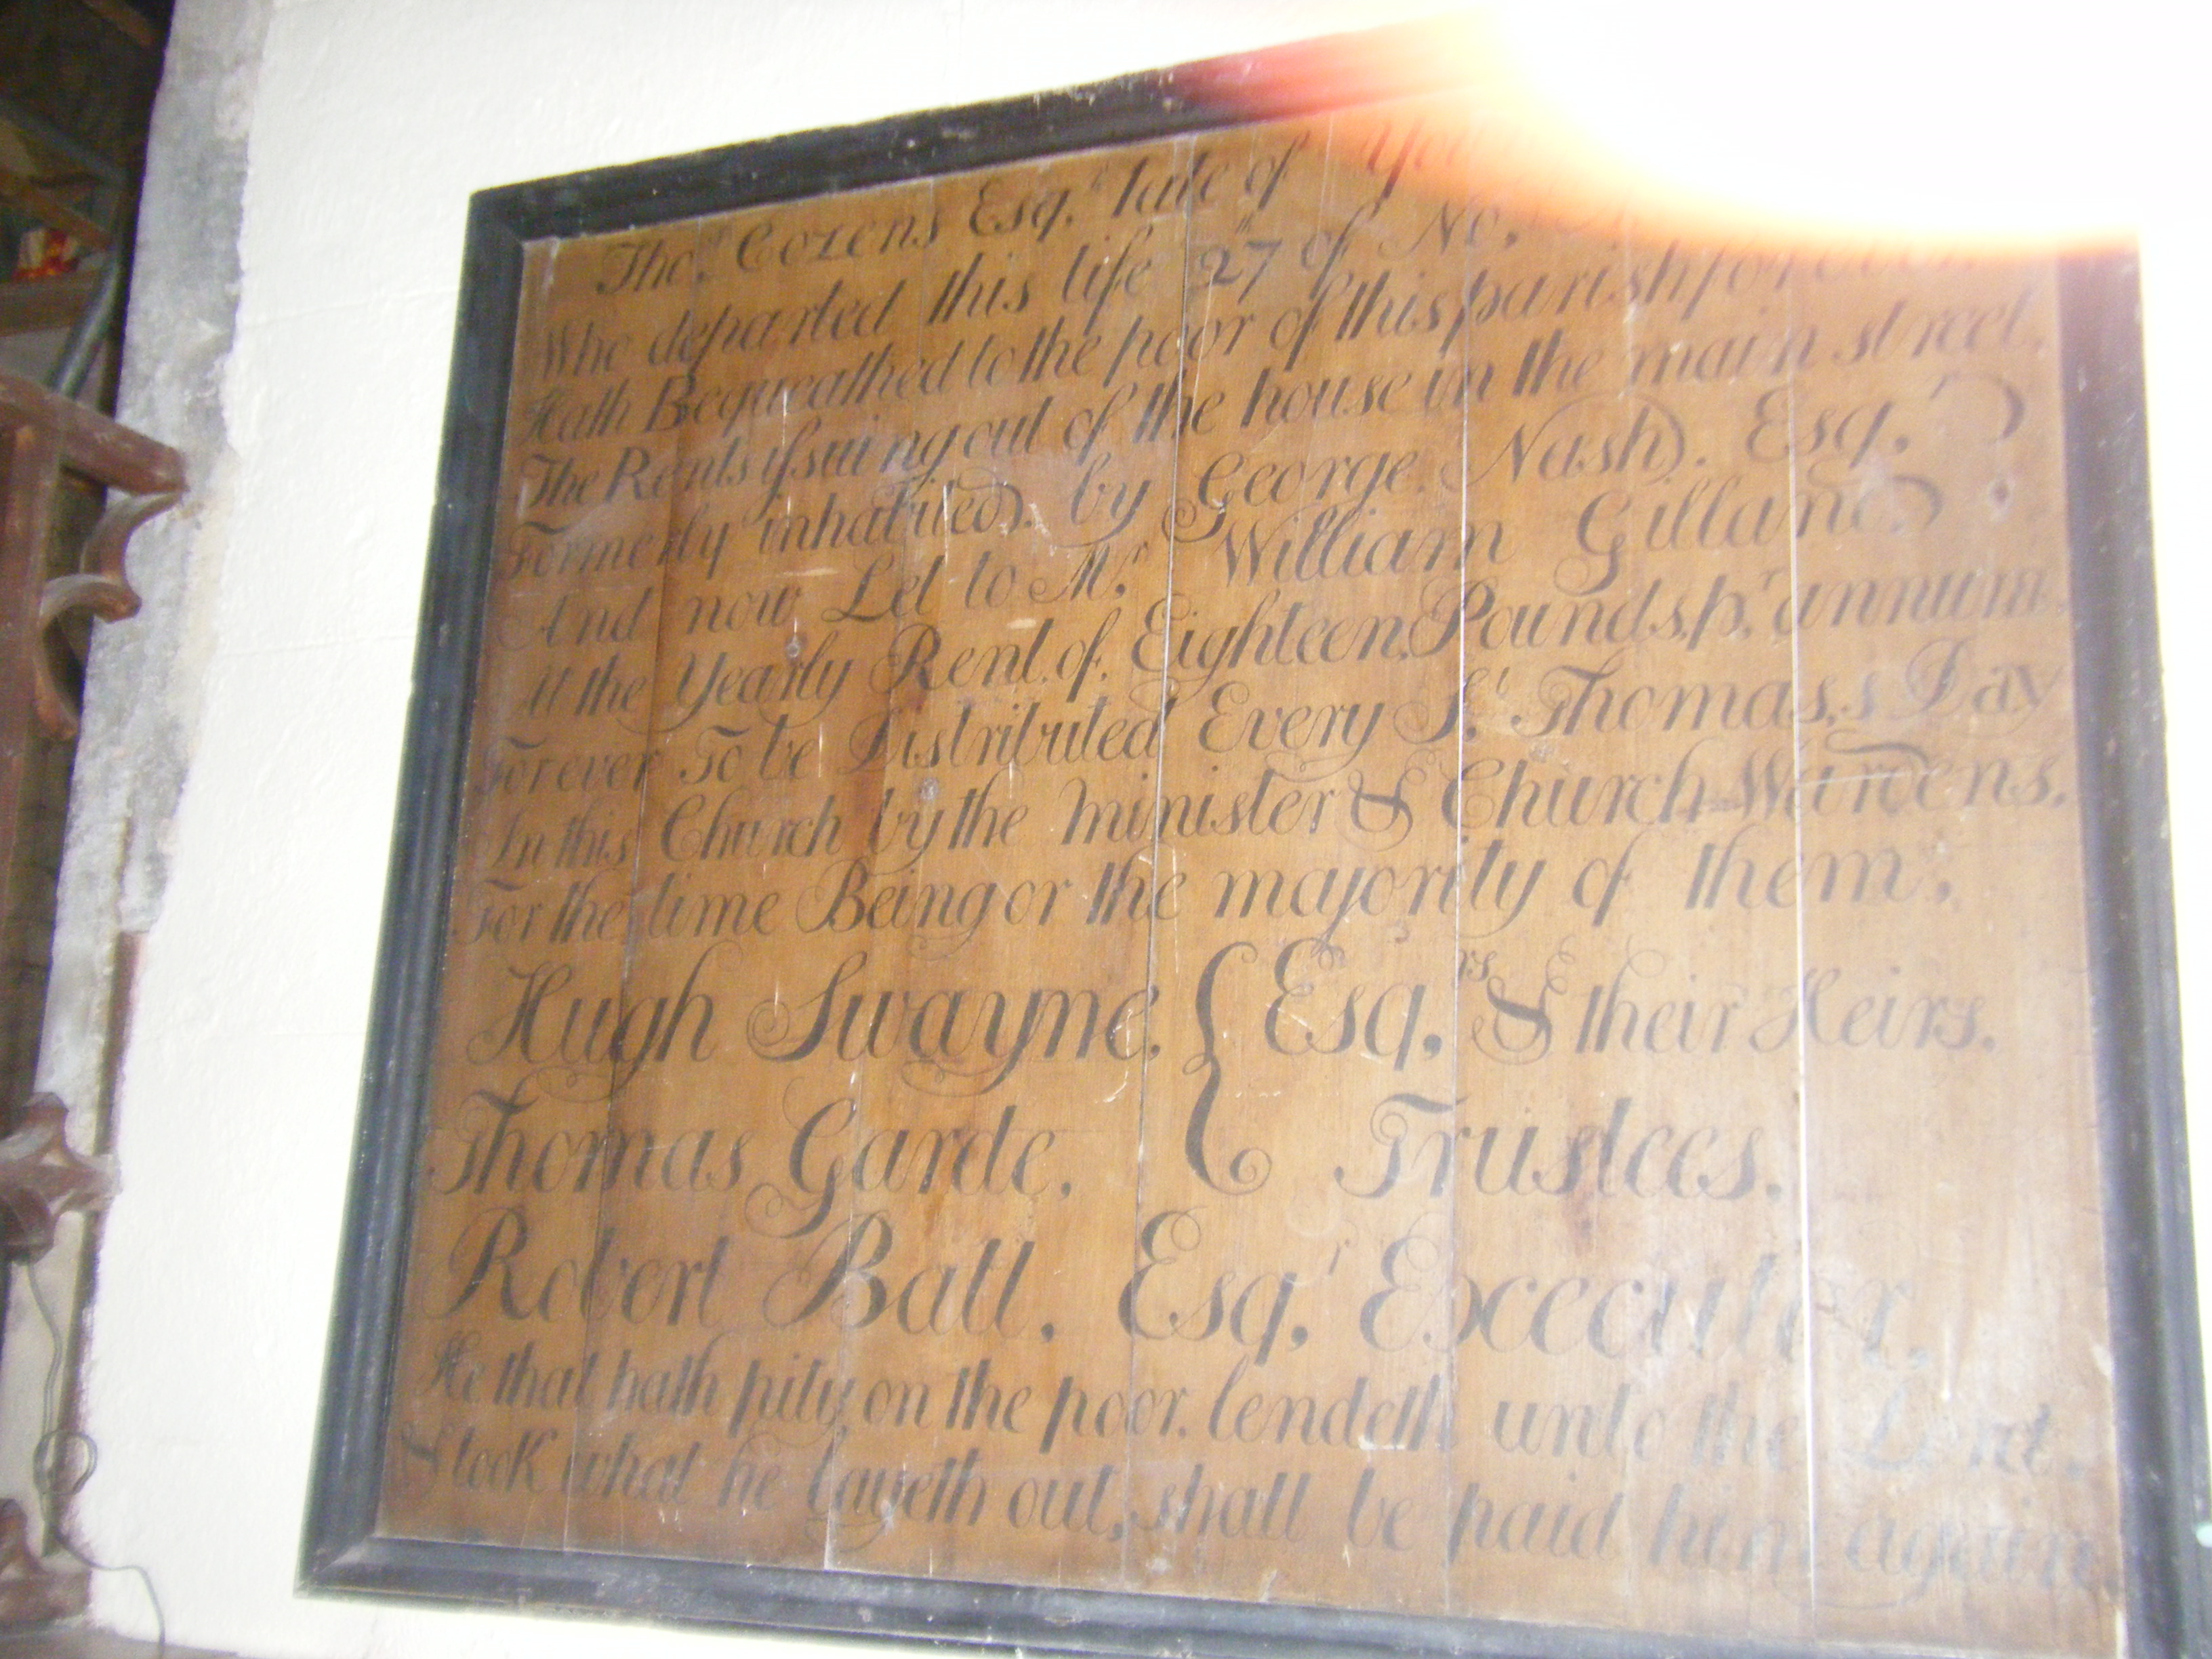 Tho.s Cozens Esq.r late of
Who departed this life 27th of No,
Hath Bequeathed to the poor of this parish forever
The Rents issuing out of the house in the main street,
Formerly inhabited. by George. Nash. Esq,r
And now Let to Mr, William Gilland
At the Yearly Rent. of. Eighteen, Pounds, p,r annum
Forever To be Distributed Every St, Thomas,s Day
In this Church by the minister & Church-Wardens,
For the time Being or the majority of them,
Hugh Swayne, { Esq,rs & their Heirs,
Thomas Garde, Trustees,
Robert Ball, Esq,r Executor,
He that hath pity, on the poor. lendeth unto the Lord,
& look what he layeth out, shall be paid him again